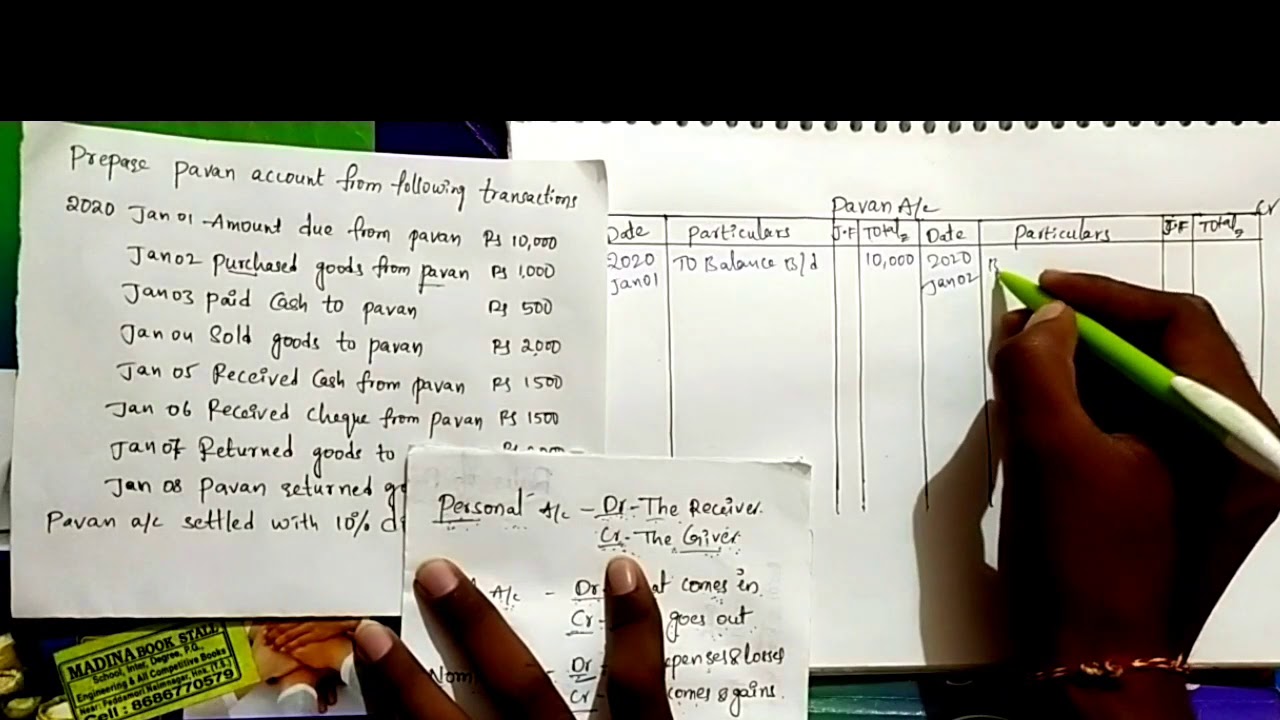 Prepare pavan account from following transactions
2020 Jan 01 Amount due from pavan Rs 10,000
Jan 02 purchased goods from pavan Rs 1,000
Jan 03 paid Cash to pavan Rs 500
Jan 04 Sold goods to pavan Rs 2,000
Jan 05 Received Cash from pavan Rs 1500
Jan 06 Received cheque from pavan Rs 1500
Jan 07 Returned goods to
Jan 08 Pavan returned
Pavan a/c settled with 10%
Personal A/c - Dr - The Receiver.
Cr - The Giver
A/c - Dr comes in.
Cr goes out
Dr &losses
Cr &gains.
Pavan A/c
Cr
Date Particulars J.F Total Date Particulars J.F Total
2020 TO Balance B/d 10,000 2020 B
Jan 01 Jan 02
MADINA BOOK STALL
School, Inter, Degree, P.G.,
Engineering & All Competitive Books
Cell : 8686770579